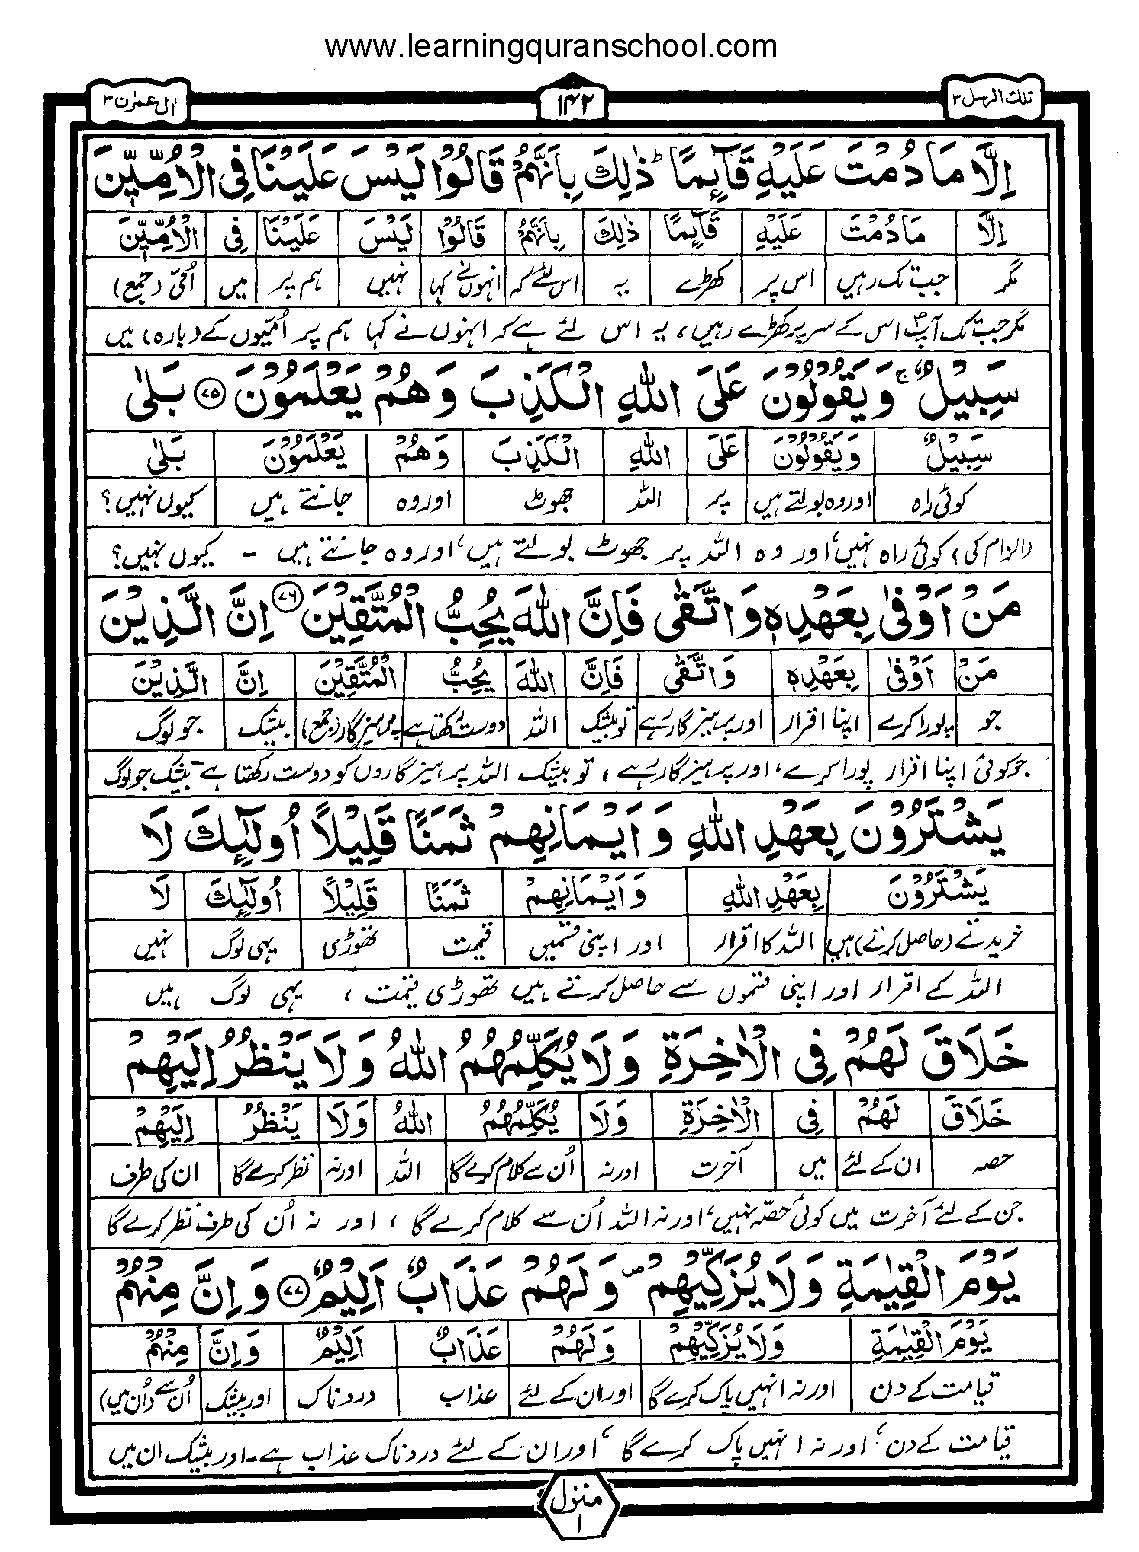 www.learningquranschool.com
تلك الرسل ۳ ۱۴۲ ال عمرٰن ۳
اِلَّا مَا دُمْتَ عَلَيْهِ قَآئِمًا ؕ ذٰلِكَ بِاَنَّهُمْ قَالُوْا لَيْسَ عَلَيْنَا فِى الْاُمِّيّٖنَ
اِلَّا مَا دُمْتَ عَلَيْهِ قَآئِمًا ذٰلِكَ بِاَنَّهُمْ قَالُوْا لَيْسَ عَلَيْنَا فِى الْاُمِّيّٖنَ
مگر جب تک رہیں اس پر کھڑے یہ اس لئے کہ انہوں نے کہا نہیں ہم پر میں اُمّی (جمع)
مگر جب تک آپ اس کے سر پر کھڑے رہیں، یہ اس لئے ہے کہ انہوں نے کہا ہم پر اُمّیوں کے (بارہ) میں
سَبِيْلٌ ۚ وَيَقُوْلُوْنَ عَلَى اللّٰهِ الْكَذِبَ وَهُمْ يَعْلَمُوْنَ ﴿۷۵﴾ بَلٰى
سَبِيْلٌ وَيَقُوْلُوْنَ عَلَى اللّٰهِ الْكَذِبَ وَهُمْ يَعْلَمُوْنَ بَلٰى
کوئی راہ اور وہ بولتے ہیں پر اللہ جھوٹ اور وہ جانتے ہیں کیوں نہیں؟
(الزام کی) کوئی راہ نہیں، اور وہ اللہ پر جھوٹ بولتے ہیں، اور وہ جانتے ہیں - کیوں نہیں؟
مَنْ اَوْفٰى بِعَهْدِهٖ وَاتَّقٰى فَاِنَّ اللّٰهَ يُحِبُّ الْمُتَّقِيْنَ ﴿۷۶﴾ اِنَّ الَّذِيْنَ
مَنْ اَوْفٰى بِعَهْدِهٖ وَاتَّقٰى فَاِنَّ اللّٰهَ يُحِبُّ الْمُتَّقِيْنَ اِنَّ الَّذِيْنَ
جو پورا کرے اپنا اقرار اور پرہیزگار رہے تو بیشک اللہ دوست رکھتا ہے پرہیزگار (جمع) بیشک جو لوگ
جو کوئی اپنا اقرار پورا کرے، اور پرہیزگار رہے، تو بیشک اللہ پرہیزگاروں کو دوست رکھتا ہے - بیشک جو لوگ
يَشْتَرُوْنَ بِعَهْدِ اللّٰهِ وَاَيْمَانِهِمْ ثَمَنًا قَلِيْلًا اُولٰٓئِكَ لَا
يَشْتَرُوْنَ بِعَهْدِ اللّٰهِ وَاَيْمَانِهِمْ ثَمَنًا قَلِيْلًا اُولٰٓئِكَ لَا
خریدتے (حاصل کرتے) ہیں اللہ کا اقرار اور اپنی قسمیں قیمت تھوڑی یہی لوگ نہیں
اللہ کے اقرار اور اپنی قسموں سے حاصل کرتے ہیں تھوڑی قیمت، یہی لوگ ہیں
خَلَاقَ لَهُمْ فِى الْاٰخِرَةِ وَلَا يُكَلِّمُهُمُ اللّٰهُ وَلَا يَنْظُرُ اِلَيْهِمْ
خَلَاقَ لَهُمْ فِى الْاٰخِرَةِ وَلَا يُكَلِّمُهُمُ اللّٰهُ وَلَا يَنْظُرُ اِلَيْهِمْ
حصہ ان کے لئے میں آخرت اور نہ اُن سے کلام کرے گا اللہ اور نہ نظر کرے گا ان کی طرف
جن کے لئے آخرت میں کوئی حصّہ نہیں، اور نہ اللہ اُن سے کلام کرے گا، اور نہ اُن کی طرف نظر کرے گا
يَوْمَ الْقِيٰمَةِ وَلَا يُزَكِّيْهِمْ ۖ وَلَهُمْ عَذَابٌ اَلِيْمٌ ﴿۷۷﴾ وَاِنَّ مِنْهُمْ
يَوْمَ الْقِيٰمَةِ وَلَا يُزَكِّيْهِمْ وَلَهُمْ عَذَابٌ اَلِيْمٌ وَاِنَّ مِنْهُمْ
قیامت کے دن اور نہ انہیں پاک کرے گا اور ان کے لئے عذاب دردناک اور بیشک اُن سے (اُن میں)
قیامت کے دن، اور نہ انہیں پاک کرے گا، اور ان کے لئے دردناک عذاب ہے - اور بیشک ان میں
منزل
۱